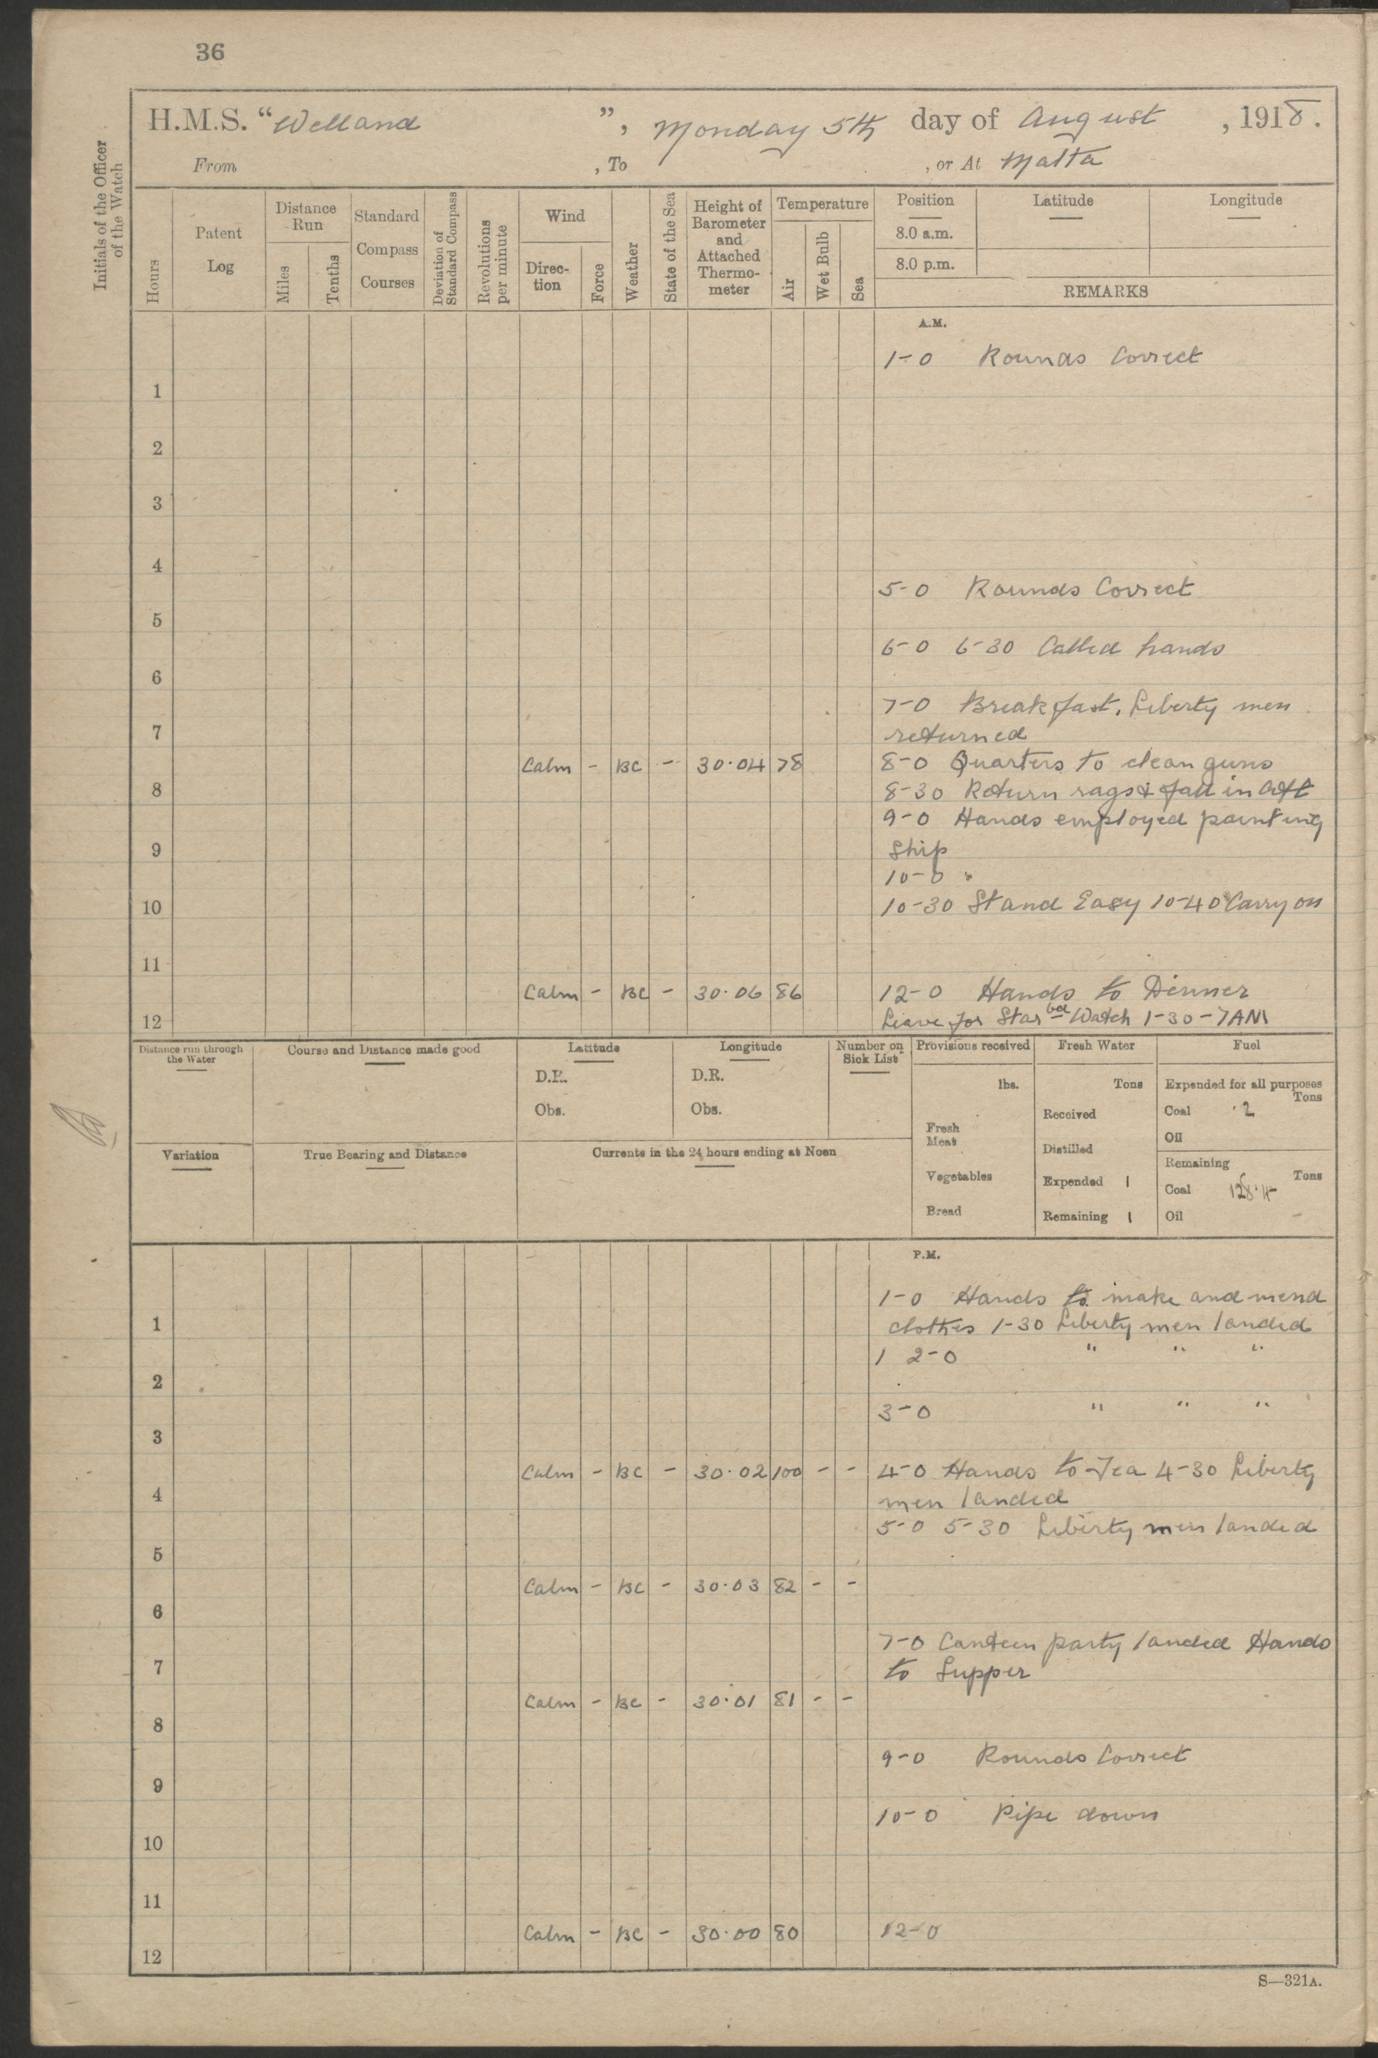 36
H.M.S. "Welland", Monday 5th day of August, 1918.
From , To , or At Malta
Initials of the Officer of the Watch
Hours
Patent Log
Distance Run
Miles
Tenths
Standard Compass Courses
Deviation of Standard Compass
Revolutions per minute
Wind
Direction
Force
Weather
State of the Sea
Height of Barometer and Attached Thermometer
Temperature
Air
Wet Bulb
Sea
Position
Latitude
Longitude
8.0 a.m.
8.0 p.m.
REMARKS
A.M.
1-0 Rounds Correct
1
2
3
4
5-0 Rounds Correct
5
6-0 6-30 Called hands
6
7-0 Breakfast, Liberty men
7 returned
Calm - BC - 30.04 78 8-0 Quarters to clean guns
8 8-30 Return rags & fall in aft
9-0 Hands employed painting
9 Ship
10-0 "
10 10-30 Stand Easy 10-40 Carry on
11
Calm - BC - 30.06 86 12-0 Hands to Dinner
12 Leave for Starbd Watch 1-30-7AM
Distance run through the Water
Course and Distance made good
Latitude
D.R.
Obs.
Longitude
D.R.
Obs.
Number on Sick List
Provisions received
lbs.
Fresh Meat
Vegetables
Bread
Fresh Water
Tons
Received
Distilled
Expended 1
Remaining 1
Fuel
Expended for all purposes
Tons
Coal .2
Oil
Remaining
Tons
Coal
Oil -
Variation
True Bearing and Distance
Currents in the 24 hours ending at Noon
P.M.
1-0 Hands to make and mend
1 clothes 1-30 Liberty men landed
1 2-0 " " "
2
3-0 " " "
3
Calm - BC - 30.02 100 - - 4-0 Hands to Tea 4-30 Liberty
4 men landed
5-0 5-30 Liberty men landed
5
Calm - BC - 30.03 82 - -
6
7-0 Canteen party landed Hands
7 to Supper
Calm - BC - 30.01 81 - -
8
9-0 Rounds Correct
9
10-0 Pipe down
10
11
Calm - BC - 30.00 80 12-0
12
S—321A.